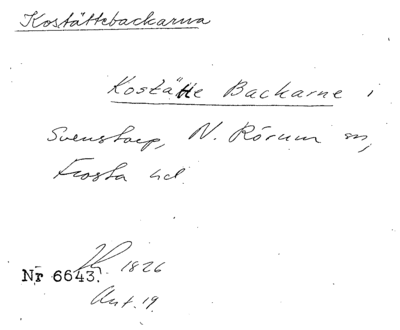 Kostättebackarna
Kostätte Backarne i
Svenstorp, N. Rörum sn,
Frosta hd.
1826
Nr 6643.
Ant. 19.